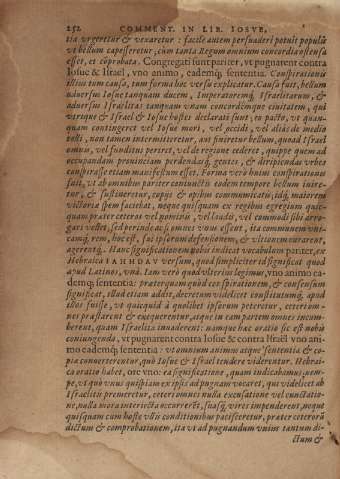 252 COMMENT. IN LIB. IOSVE,
ita vrgeretur & vexaretur : facile autem persuaderi potuit populis
vt bellum capesseretur, cum tanta Regum omnium concordia ostensa
esset, et cōprobata. Congregati sunt pariter, vt pugnarent contra
Iosue & Israel, vno animo, eademq; sententia. Conspirationis
illius tum causa, tum forma hoc versu explicatur. Causa fuit, bellum
aduersus Iosue tanquam ducem, Imperatoremq; Israelitarum, &
aduersus Israelitas tanquam vnam concordemque ciuitatem, qui
vtrique & Israel & Iosue hostes declarati sunt, eo pacto, vt quan-
quam contingeret vel Iosue mori, vel occidi, vel alias de medio
tolli, non tamen intermitteretur, aut finiretur bellum, quoad Israel
omnis, vel funditus periret, vel de regione cederet, quippe quem ad
occupandam prouinciam perdendasq; gentes, & diripiendas vrbes
conspirasse etiam manifestum esset. Forma verò huius conspirationis
fuit, vt ab omnibus pariter coniunctis eodem tempore bellum inire-
tur, & sustineretur, copijs & opibus communicatis; idq; maiorem
victoriæ spem faciebat, neque quisquam ex regibus egregium quic-
quam præter ceteros vel nominis, vel laudis, vel commodi sibi arro-
gari vellet, sed perinde ac si omnes vnus essent, ita communem vni-
camq; rem, hoc est, suæ ipsorum defensionem, & vltionem curarent,
agerentq;. Hanc significationem nobis indicat vocabulum pariter, ex
Hebraico IAHHDAV versum, quod simpliciter id significat quod
apud Latinos, vnà. Iam verò quod vlterius legimus, vno animo ea-
demq; sententia: præterquam quòd conspirationem, & consensum
significat, illud etiam addit, decretum videlicet constitutumq; quod
illos fuisse, vt quicquid à quolibet ipsorum peteretur, ceteri om-
nes præstarent & exequerentur, atque in eam partem omnes incum-
berent, quam Israelitæ inuaderent: namque hæc oratio sic est nobis
coniungenda, vt pugnarent contra Iosue & contra Israël vno ani-
mo eademq; sententia: vt omnium animo atque sententia & co-
piæ conuerterentur, quò Iosue & Israel tendere viderentur. Hebrai-
ca oratio habet, ore vno: ea significatione, quam indicabamus; nem-
pe, vt quò vnus quispiam ex ipsis ad pugnam vocaret, qui videlicet ab
Israelitis premeretur, ceteri omnes nulla excusatione vel cunctatio-
ne, nulla mora interiecta occurrerēt, suasq; vires impenderent, neque
quisquam cum hoste vllis conditionibus pacisceretur, præter ceterorū
dictum & comprobationem, ita vt ad pugnandum vnius tantum di-
ctum &